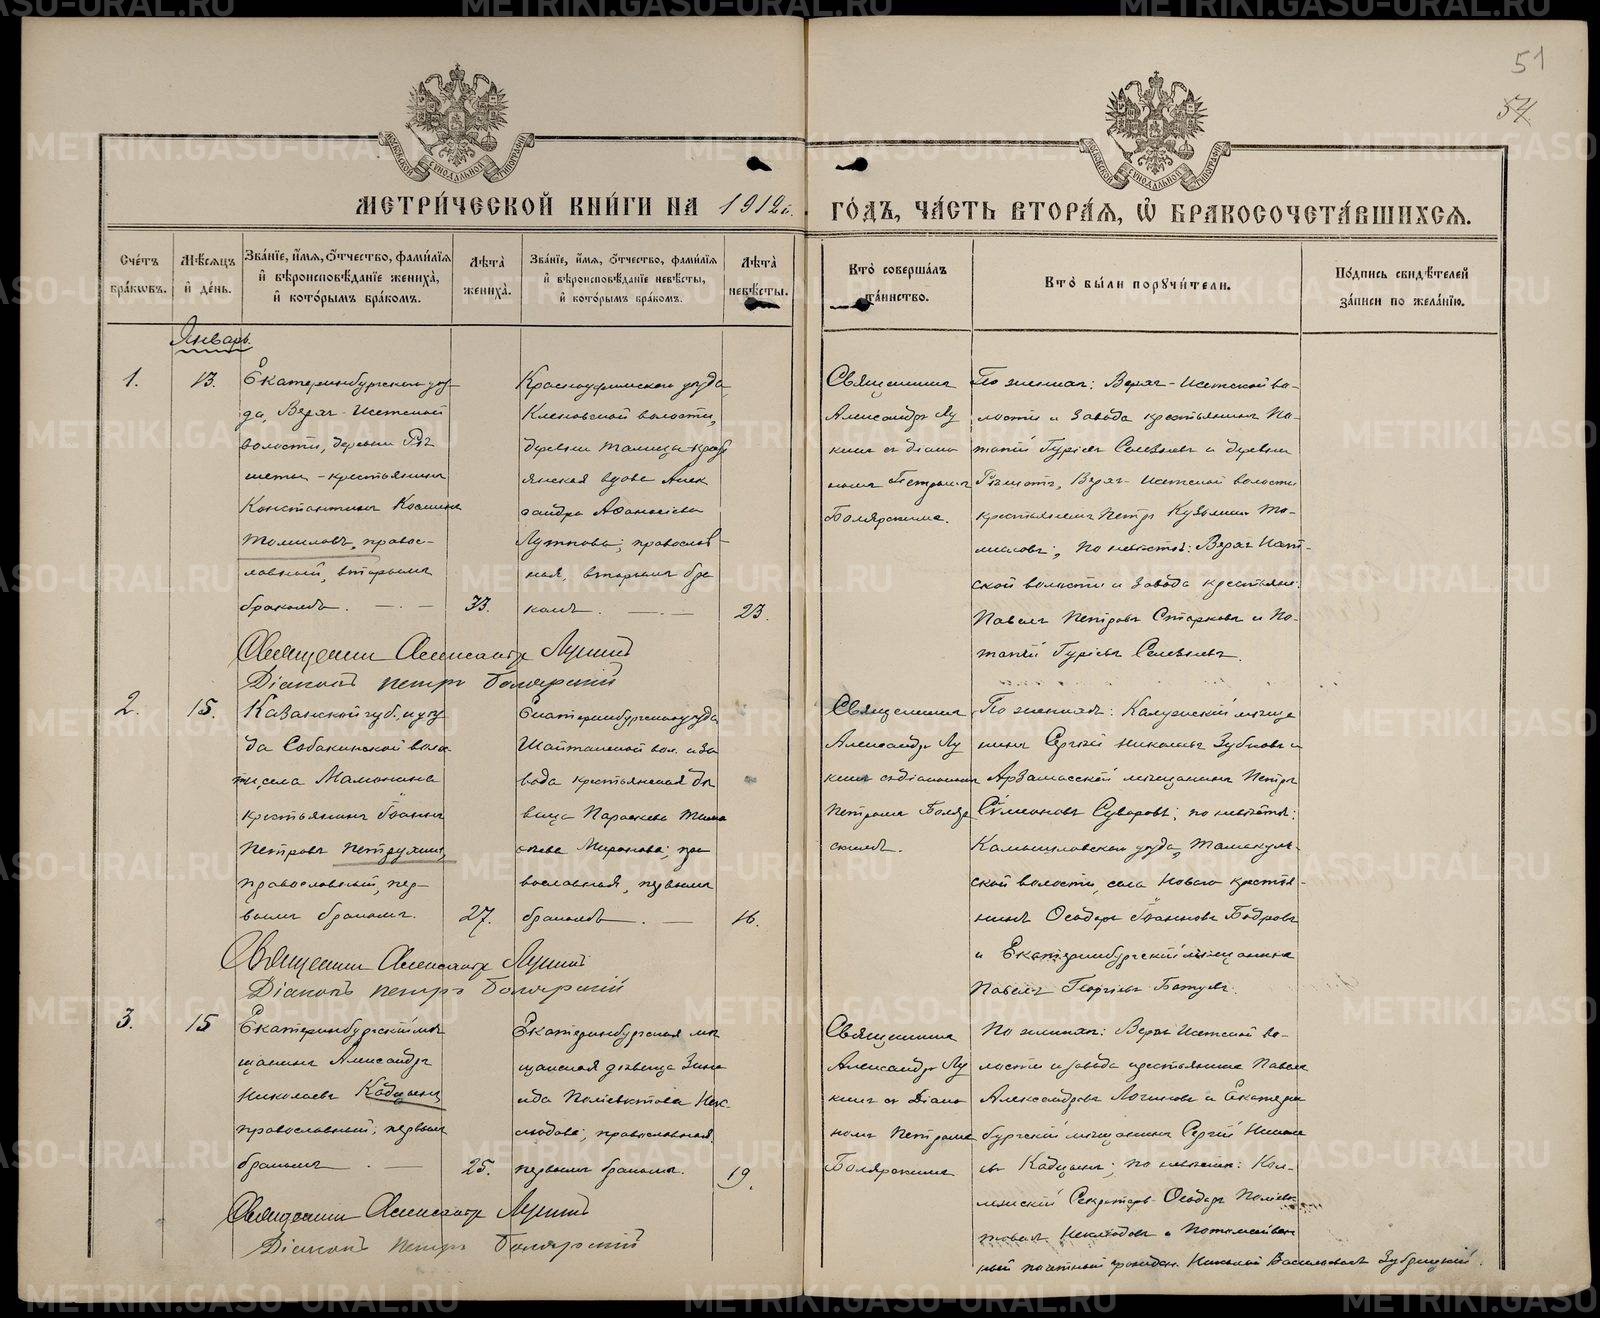 51
54
МЕТРИЧЕСКОЙ КНИГИ НА 1912й.
ГОДЪ, ЧАСТЬ ВТОРАЯ, Ѡ БРАКОСОЧЕТАВШИХСЯ.
Счетъ браковъ.
Мѣсяцъ и день.
Званіе, имя, отчество, фамилія
и вѣроисповѣданіе жениха,
и которымъ бракомъ.
Лѣта
жениха.
Званіе, имя, отчество, фамилія
и вѣроисповѣданіе невѣсты,
и которымъ бракомъ.
Лѣта
невѣсты.
Кто совершалъ
таинство.
Кто были поручители.
Подпись свидѣтелей
записи по желанію.
Январь.
1.
13.
Екатеринбургскаго уѣз-
да, Верхъ-Исетской
волости, деревни Рѣ
шеты - крестьянинъ
Константинъ Косминъ
Томиловъ, правос-
лавный, вторымъ
бракомъ.
33.
Красноуфимскаго уѣзда,
Кленовской волости,
деревни Талицы крест
янская вдова Алек
сандра Афанасіева
православ-
ная, вторымъ бра
комъ.
23.
Священникъ
Александръ Лу
кинъ съ діако
номъ Петромъ
Болярскимъ.
По женихѣ: Верхъ-Исетской во-
лости и завода крестьянинъ По-
тапій Гуріевъ Селезневъ и деревни
Рѣшотъ, Верхъ-Исетской волости
крестьянинъ Петръ Кузьминъ То-
миловъ; по невѣстѣ: Верхъ Исет-
ской волости и завода крестьяне:
Павелъ Петровъ Старковъ и По-
тапій Гуріевъ Селезневъ.
Священникъ Александръ Лукинъ
Діаконъ Петръ Болярскій
2.
15.
Казанской губ. и уѣз
да Собакинской воло
ти, села Мамонина
крестьянинъ Іоаннъ
Петровъ Петрухинъ,
православный, пер-
вымъ бракомъ.
27.
Екатеринбургскаго уѣзда
Шайтанской вол. и за
вода крестьянская дѣ
вица Параскева Тимо
ѳеева Миронова; пра
вославная, первымъ
бракомъ.
16.
Священникъ
Александръ Лу
кинъ съ діакономъ
Петромъ Боляр
скимъ.
По женихѣ: Калужскій мѣща
нинъ Сергій Николаевъ Зубковъ и
Арзамасскій мѣщанинъ Петръ
Симеоновъ Суворовъ; по невѣстѣ:
Камышловскаго уѣзда,
ской волости, села Новаго крестья-
нинъ Ѳеодоръ Іоанновъ Бобровъ
и Екатеринбургскій мѣщанинъ
Павелъ Георгіевъ
Священникъ Александръ Лукинъ
Діаконъ Петръ Болярскій
3.
15
Екатеринбургскій мѣ
щанинъ Александръ
Николаевъ Кобцынъ
православный; первымъ
бракомъ
25.
Екатеринбургская мѣ
щанская дѣвица Зина
ида Поліевктова Нек-
людова; православная,
первымъ бракомъ.
19.
Священникъ
Александръ Лу
кинъ съ Діако
номъ Петромъ
Болярскимъ
По женихѣ: Верхъ Исетской во-
лости и завода крестьянинъ Павелъ
Александровъ Логиновъ и Екатерин
бургскій мѣщанинъ Сергій Никола
евъ Кобцынъ; по невѣстѣ: Кол-
лежскій Секретарь Ѳеодоръ Поліевк
товъ Неклюдовъ и Потомствен
ный почетный граждан. Николай Васильевъ Зубрицкій.
Священникъ Александръ Лукинъ
Діаконъ Петръ Болярскій
METRIKI.GASO-URAL.RU